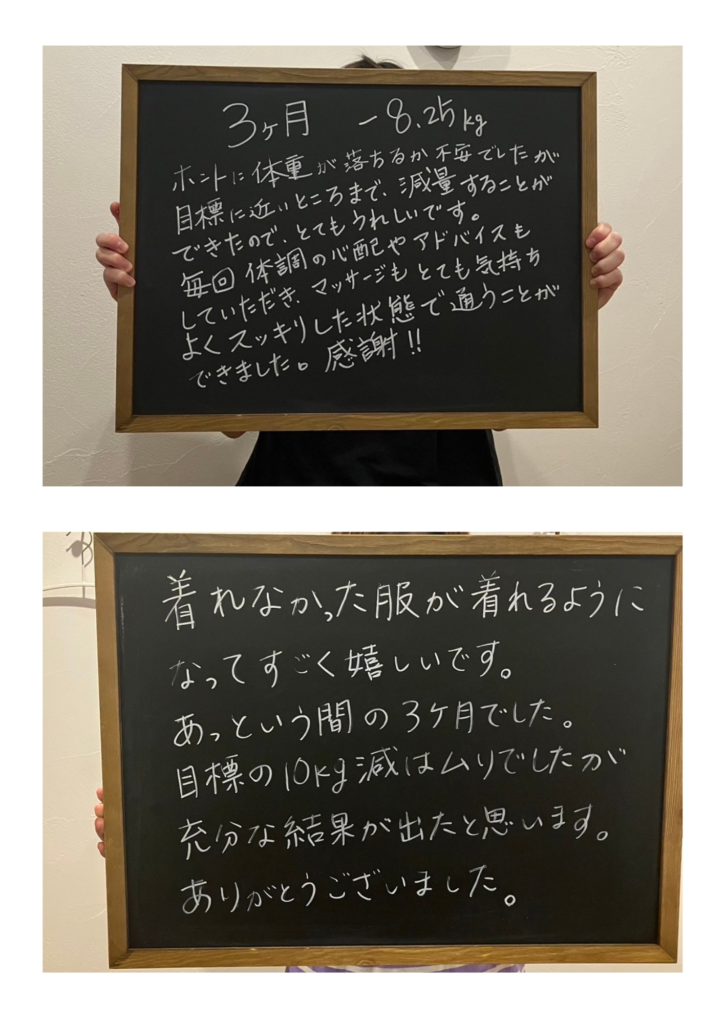 3ヶ月 -8.25kg
ホントに体重が落ちるか不安でしたが
目標に近いところまで、減量することが
できたので、とてもうれしいです。
毎回体調の心配やアドバイスも
していただき、マッサージもとても気持ち
よくスッキリした状態で通うことが
できました。感謝!!
着れなかった服が着れるように
なってすごく嬉しいです。
あっという間の3ケ月でした。
目標の10kg減はムリでしたが
充分な結果が出たと思います。
ありがとうございました。